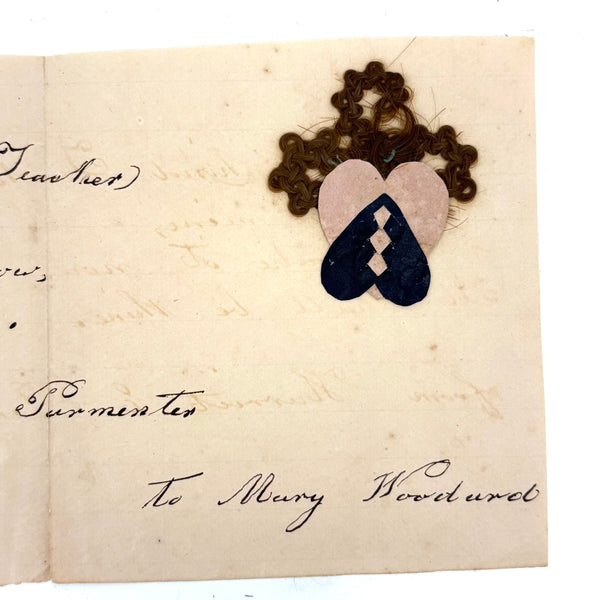 Teacher)
ow,
.
Parmenter
to Mary Woodard